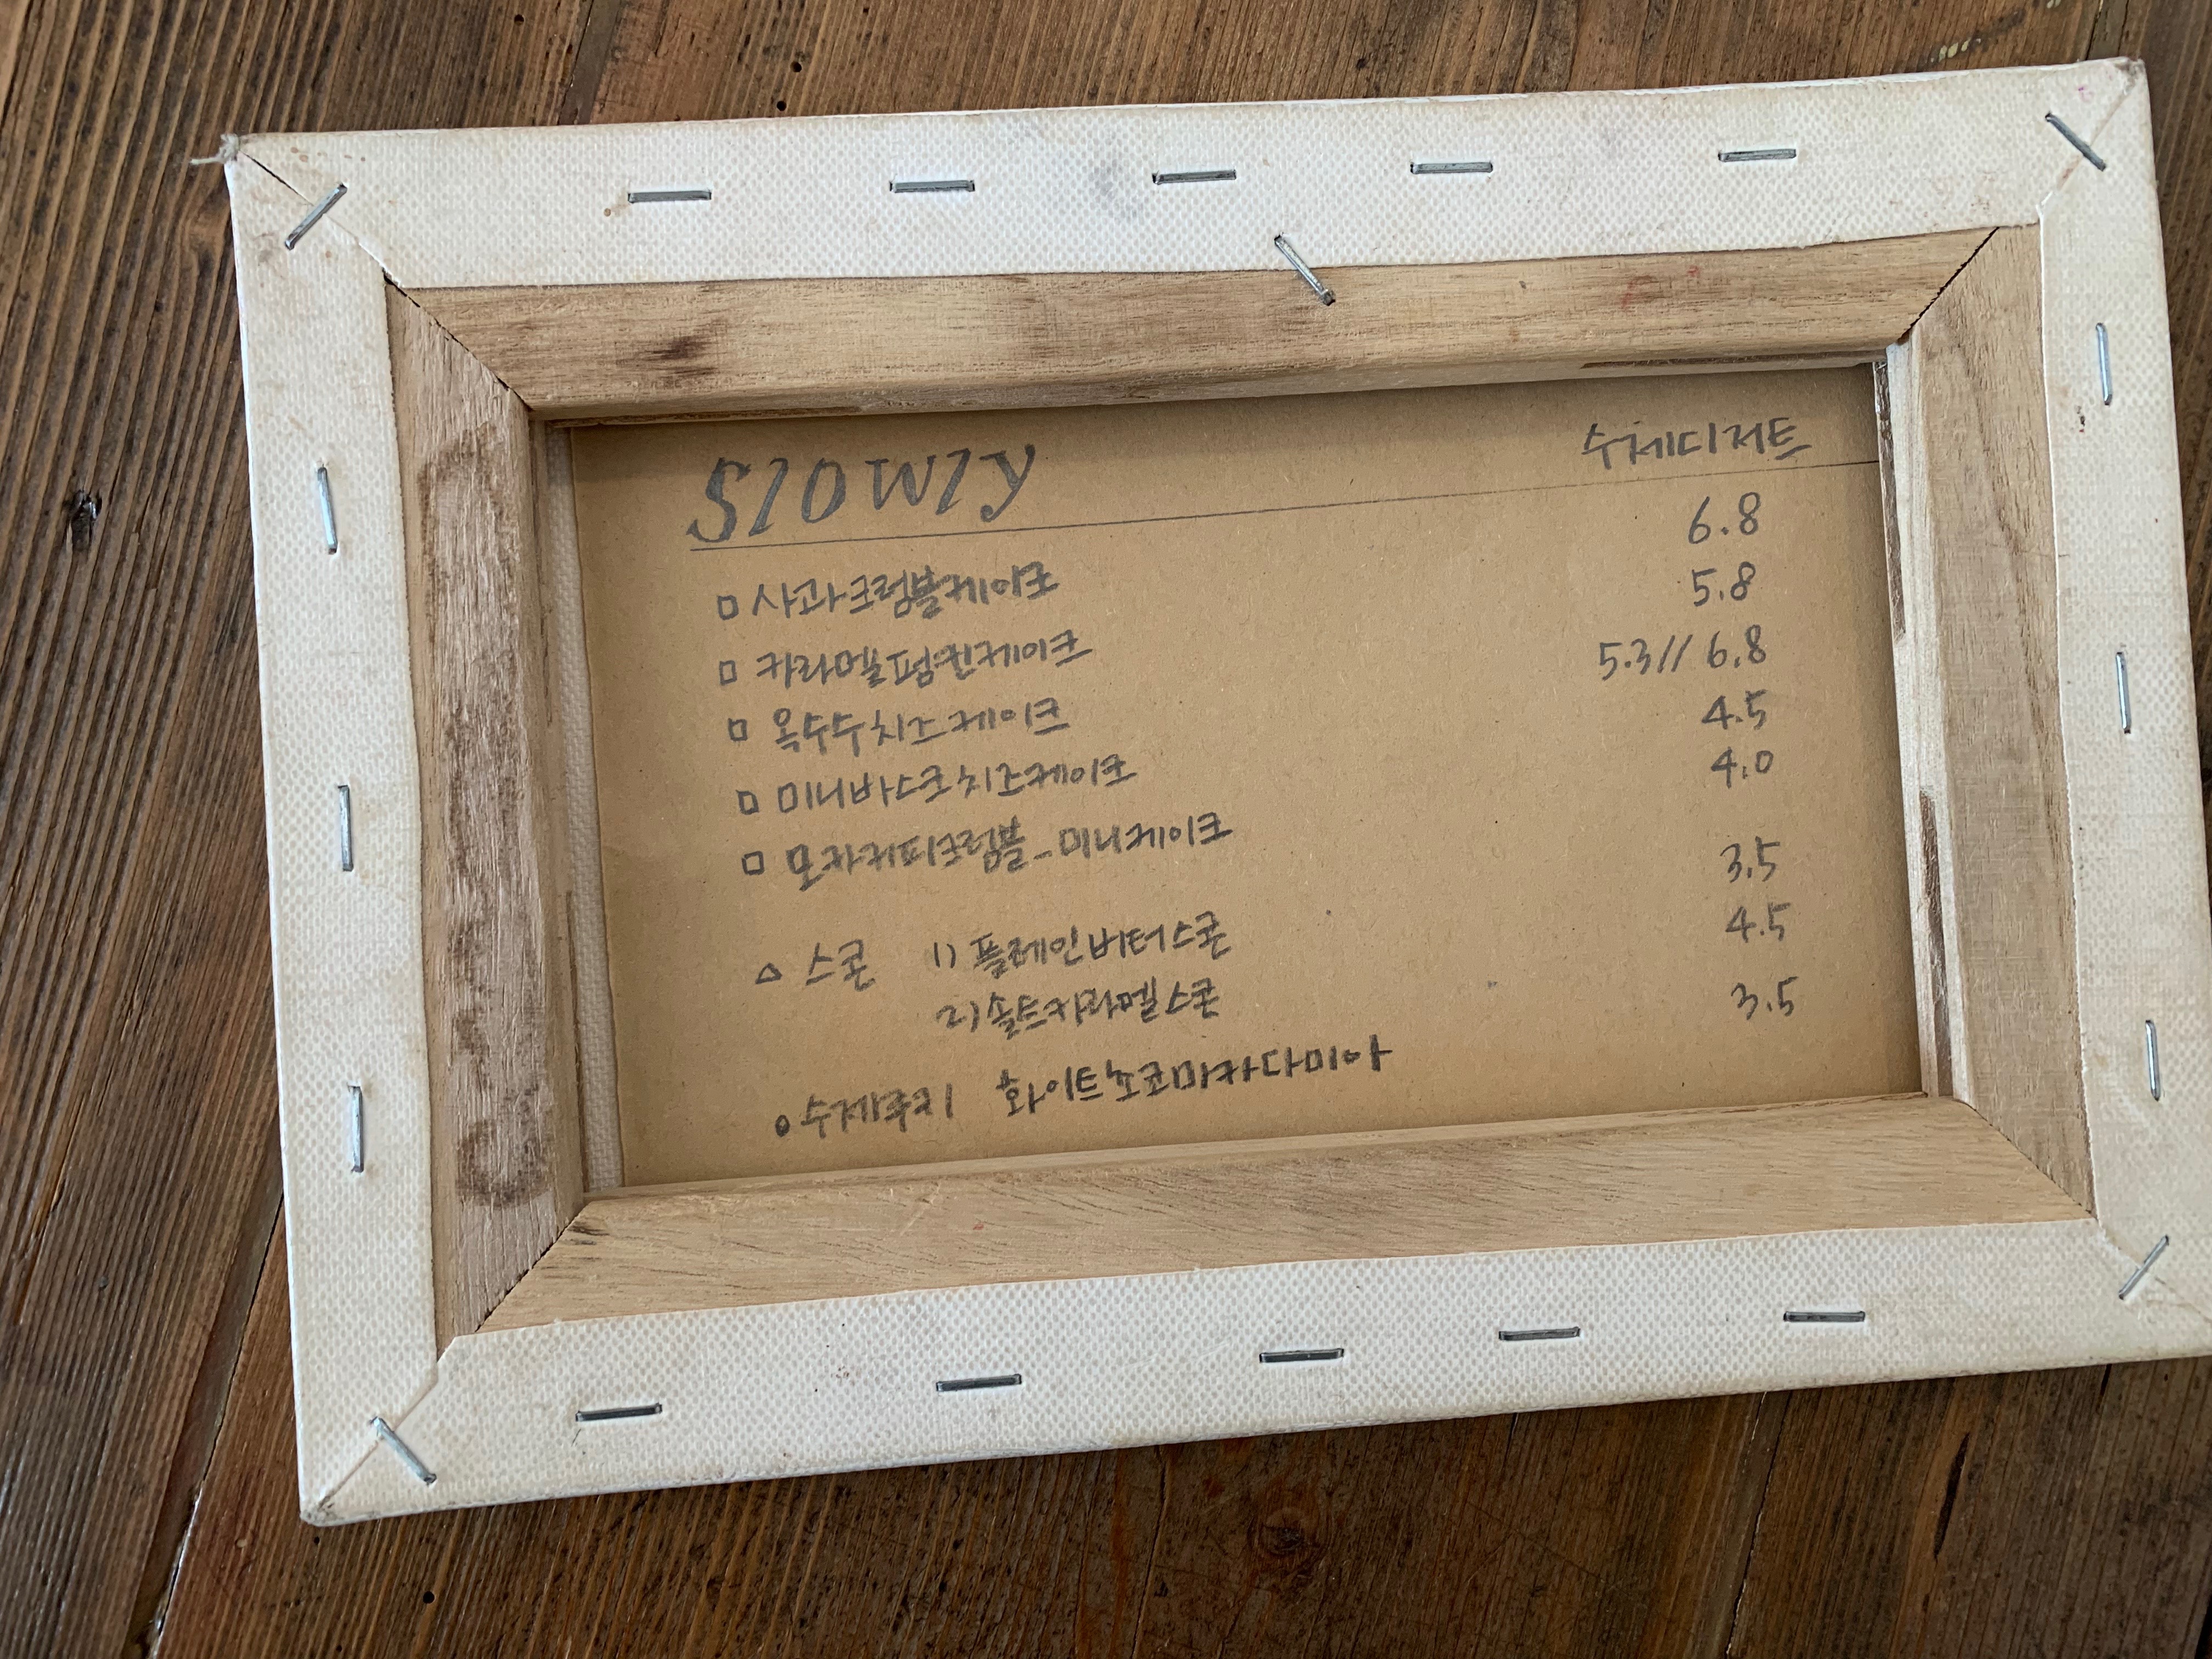 Slowly 수제디저트
□ 사과크럼블케이크 6.8
□ 카라멜펌킨케이크 5.8
□ 옥수수치즈케이크 5.3// 6.8
□ 미니바스크치즈케이크 4.5
□ 모카커피크럼블-미니케이크 4.0
△ 스콘 1) 플레인버터스콘 3.5
2) 솔트카라멜스콘 4.5
○ 수제쿠키 화이트쵸코마카다미아 3.5